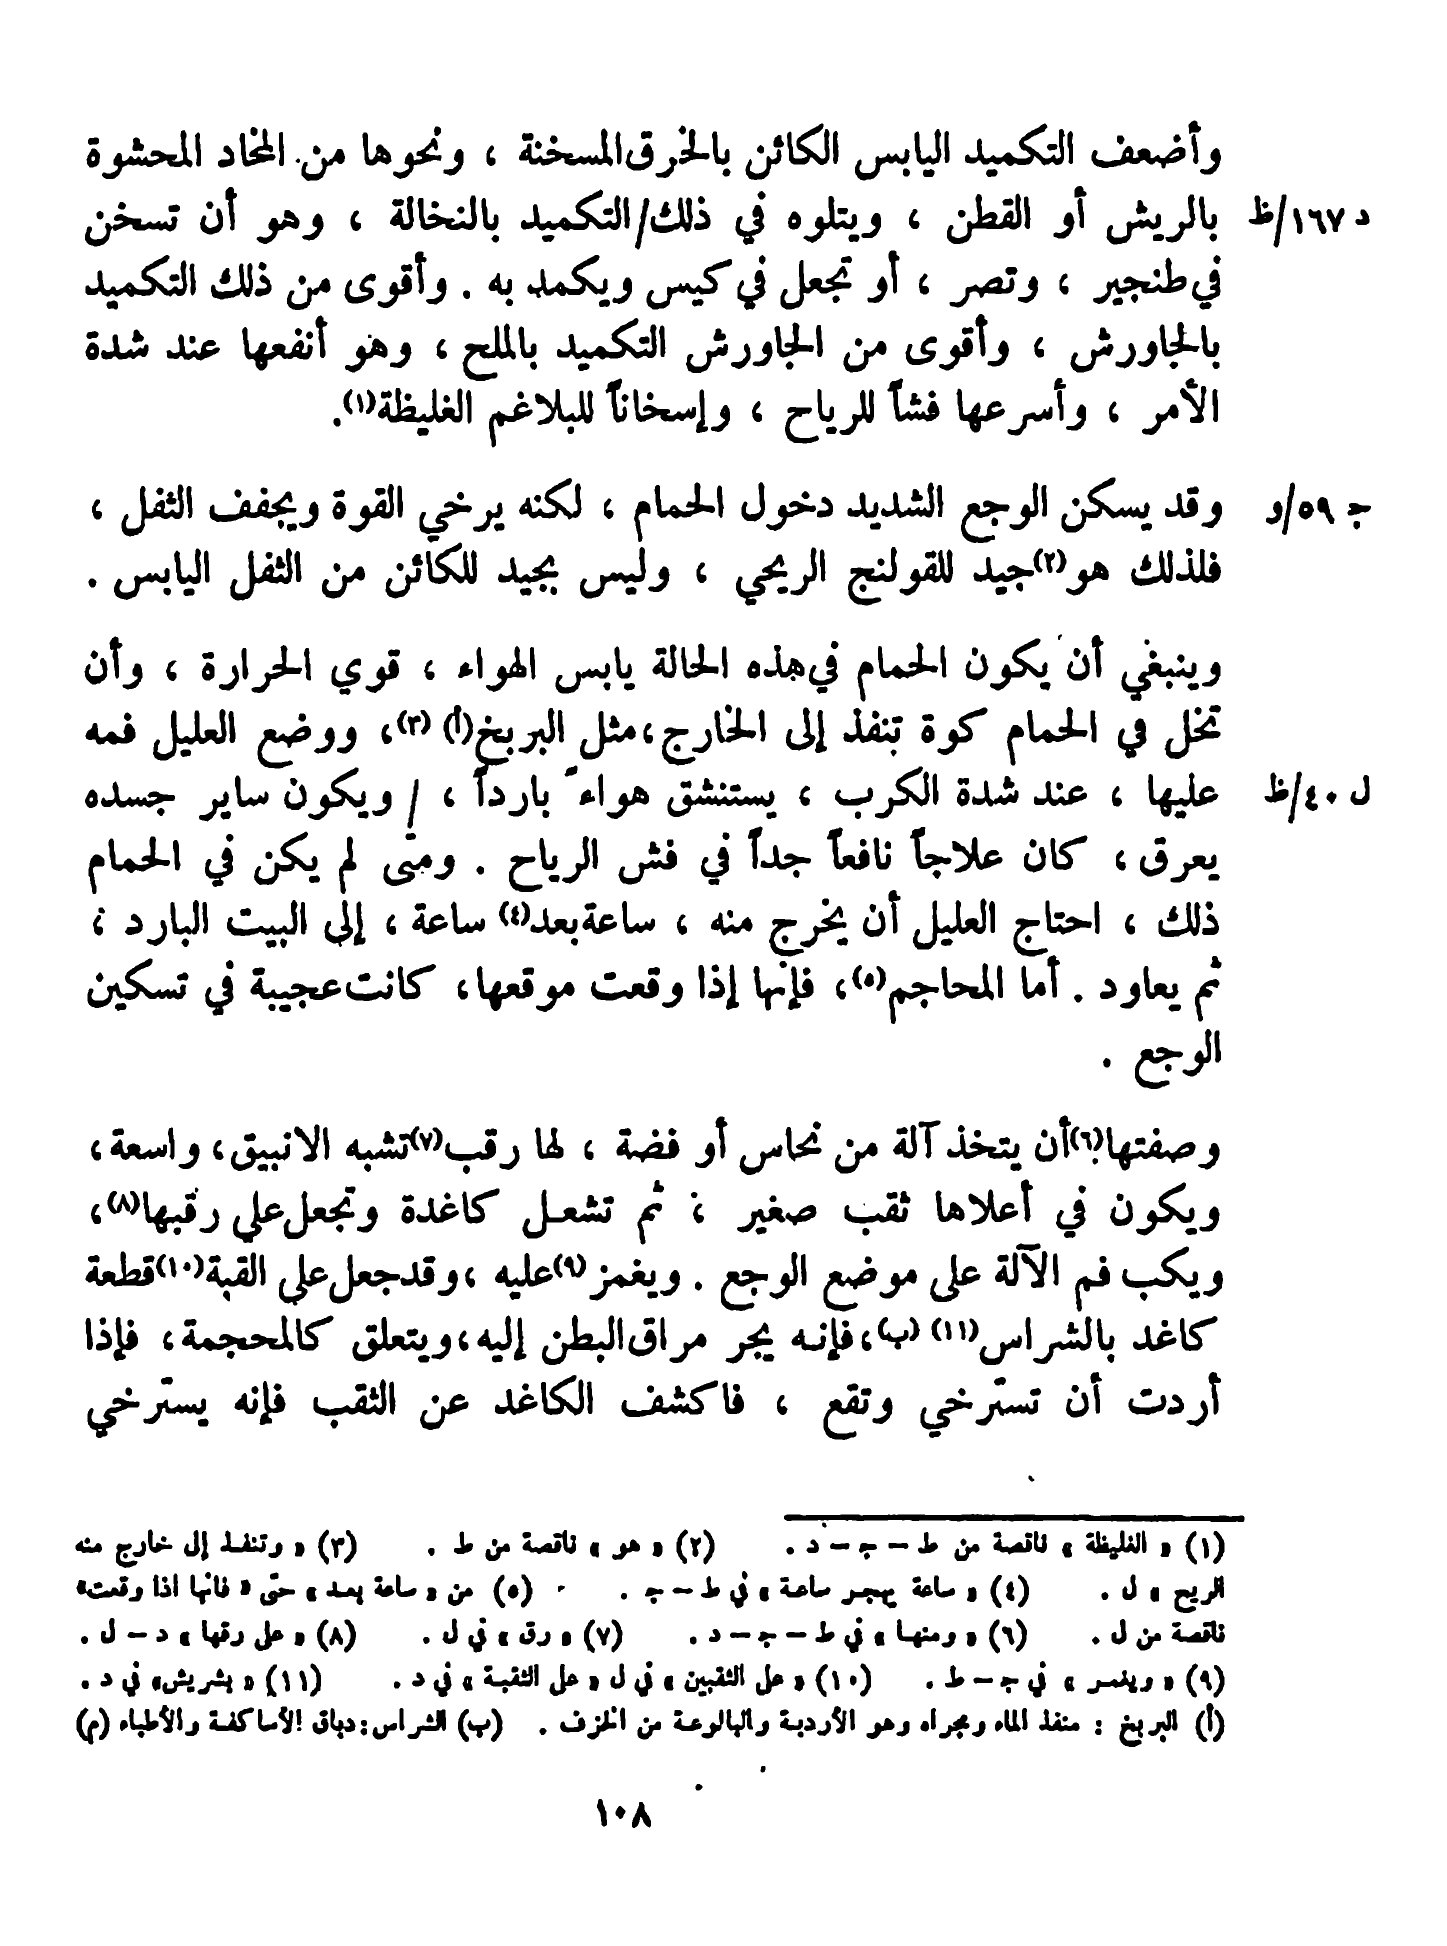 وأضعف التكميد اليابس الكائن بالخرق المسخنة ، ونحوها من المخاد المحشوة
د ١٦٧/ظ بالريش أو القطن ، ويتلوه في ذلك/التكميد بالنخالة ، وهو أن تسخن
في طنجير ، وتصر ، أو تجعل في كيس ويكمد به . وأقوى من ذلك التكميد
بالجاورش ، وأقوى من الجاورش التكميد بالملح ، وهو أنفعها عند شدة
الأمر ، وأسرعها فشاً للرياح ، وإسخاناً للبلاغم الغليظة(١).
ج ٥٩/و وقد يسكن الوجع الشديد دخول الحمام ، لكنه يرخي القوة ويجفف الثفل ،
فلذلك هو(٢)جيد للقولنج الريحي ، وليس بجيد للكائن من الثفل اليابس .
وينبغي أن يكون الحمام في هذه الحالة يابس الهواء ، قوي الحرارة ، وأن
تخل في الحمام كوة تنفذ إلى الخارج ،مثل البربخ(أ) (٣)، ووضع العليل فمه
ل ٤٠/ظ عليها ، عند شدة الكرب ، يستنشق هواءً بارداً ، / ويكون ساير جسده
يعرق ، كان علاجاً نافعاً جداً في فش الرياح . ومتى لم يكن في الحمام
ذلك ، احتاج العليل أن يخرج منه ، ساعة بعد(٤) ساعة ، إلى البيت البارد ؛
ثم يعاود . أما المحاجم(٥)، فإنها إذا وقعت موقعها، كانت عجيبة في تسكين
الوجع .
وصفتها(٦)أن يتخذ آلة من نحاس أو فضة ، لها رقب(٧)تشبه الانبيق، واسعة،
ويكون في أعلاها ثقب صغير ؛ ثم تشعل كاغدة وتجعل على رقبها(٨)،
ويكب فم الآلة على موضع الوجع . ويغمز(٩)عليه ،وقد جعل على القبة(١٠)قطعة
كاغد بالشراس(١١) (ب)،فإنه يجر مراق البطن إليه،ويتعلق كالمحجمة، فإذا
أردت أن تسترخي وتقع ، فاكشف الكاغد عن الثقب فإنه يسترخي
(١) « الغليظة » ناقصة من ط – ج – د . (٢) « هو » ناقصة من ط . (٣) « وتنفذ إلى خارج منه
الريح » ل . (٤) « ساعة يهجر ساعة » في ط – ج . (٥) من « ساعة بعد » حتى « فانها اذا وقعت»
ناقصة من ل . (٦) « ومنها » في ط – ج – د . (٧) « رق » في ل . (٨) « على رقها » د – ل .
(٩) « ويغمر » في ج – ط . (١٠) « على الثقبين » في ل « على الثقبة » في د . (١١) « بشريش» في د .
(أ) البربخ : منفذ الماء ومجراه وهو الأردبة والبالوعة من الخزف . (ب) الشراس: دباق الأساكفة والأطباء (م)
١٠٨